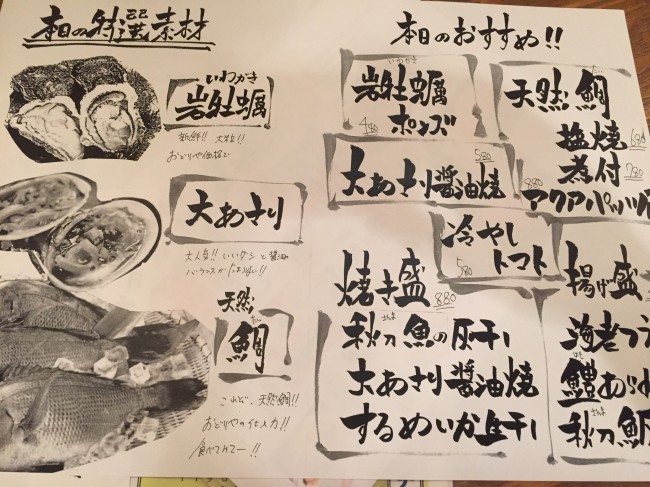 本日の特選素材
いわがき
岩牡蠣
新鮮!! 大粒!!
おどりや価格で
大あさり
大人気!! いいダシと醤油
バランスがたまらない!!
天然
鯛
これぞ、天然鯛!!
おどりやの仕入力!!
食べてれてー!!
本日のおすすめ!!
いわがき
岩牡蠣
ポンズ
480
天然鯛
塩焼 680
煮付 780
880 アクアパッツァ
大あさり醤油焼 580
冷やし
トマト
580
焼き盛 880
さんま
秋刀魚の灰干し
大あさり醤油焼
するめいか上干し
揚げ盛
海老フラ
はも
鱧あられ
さんま
秋刀